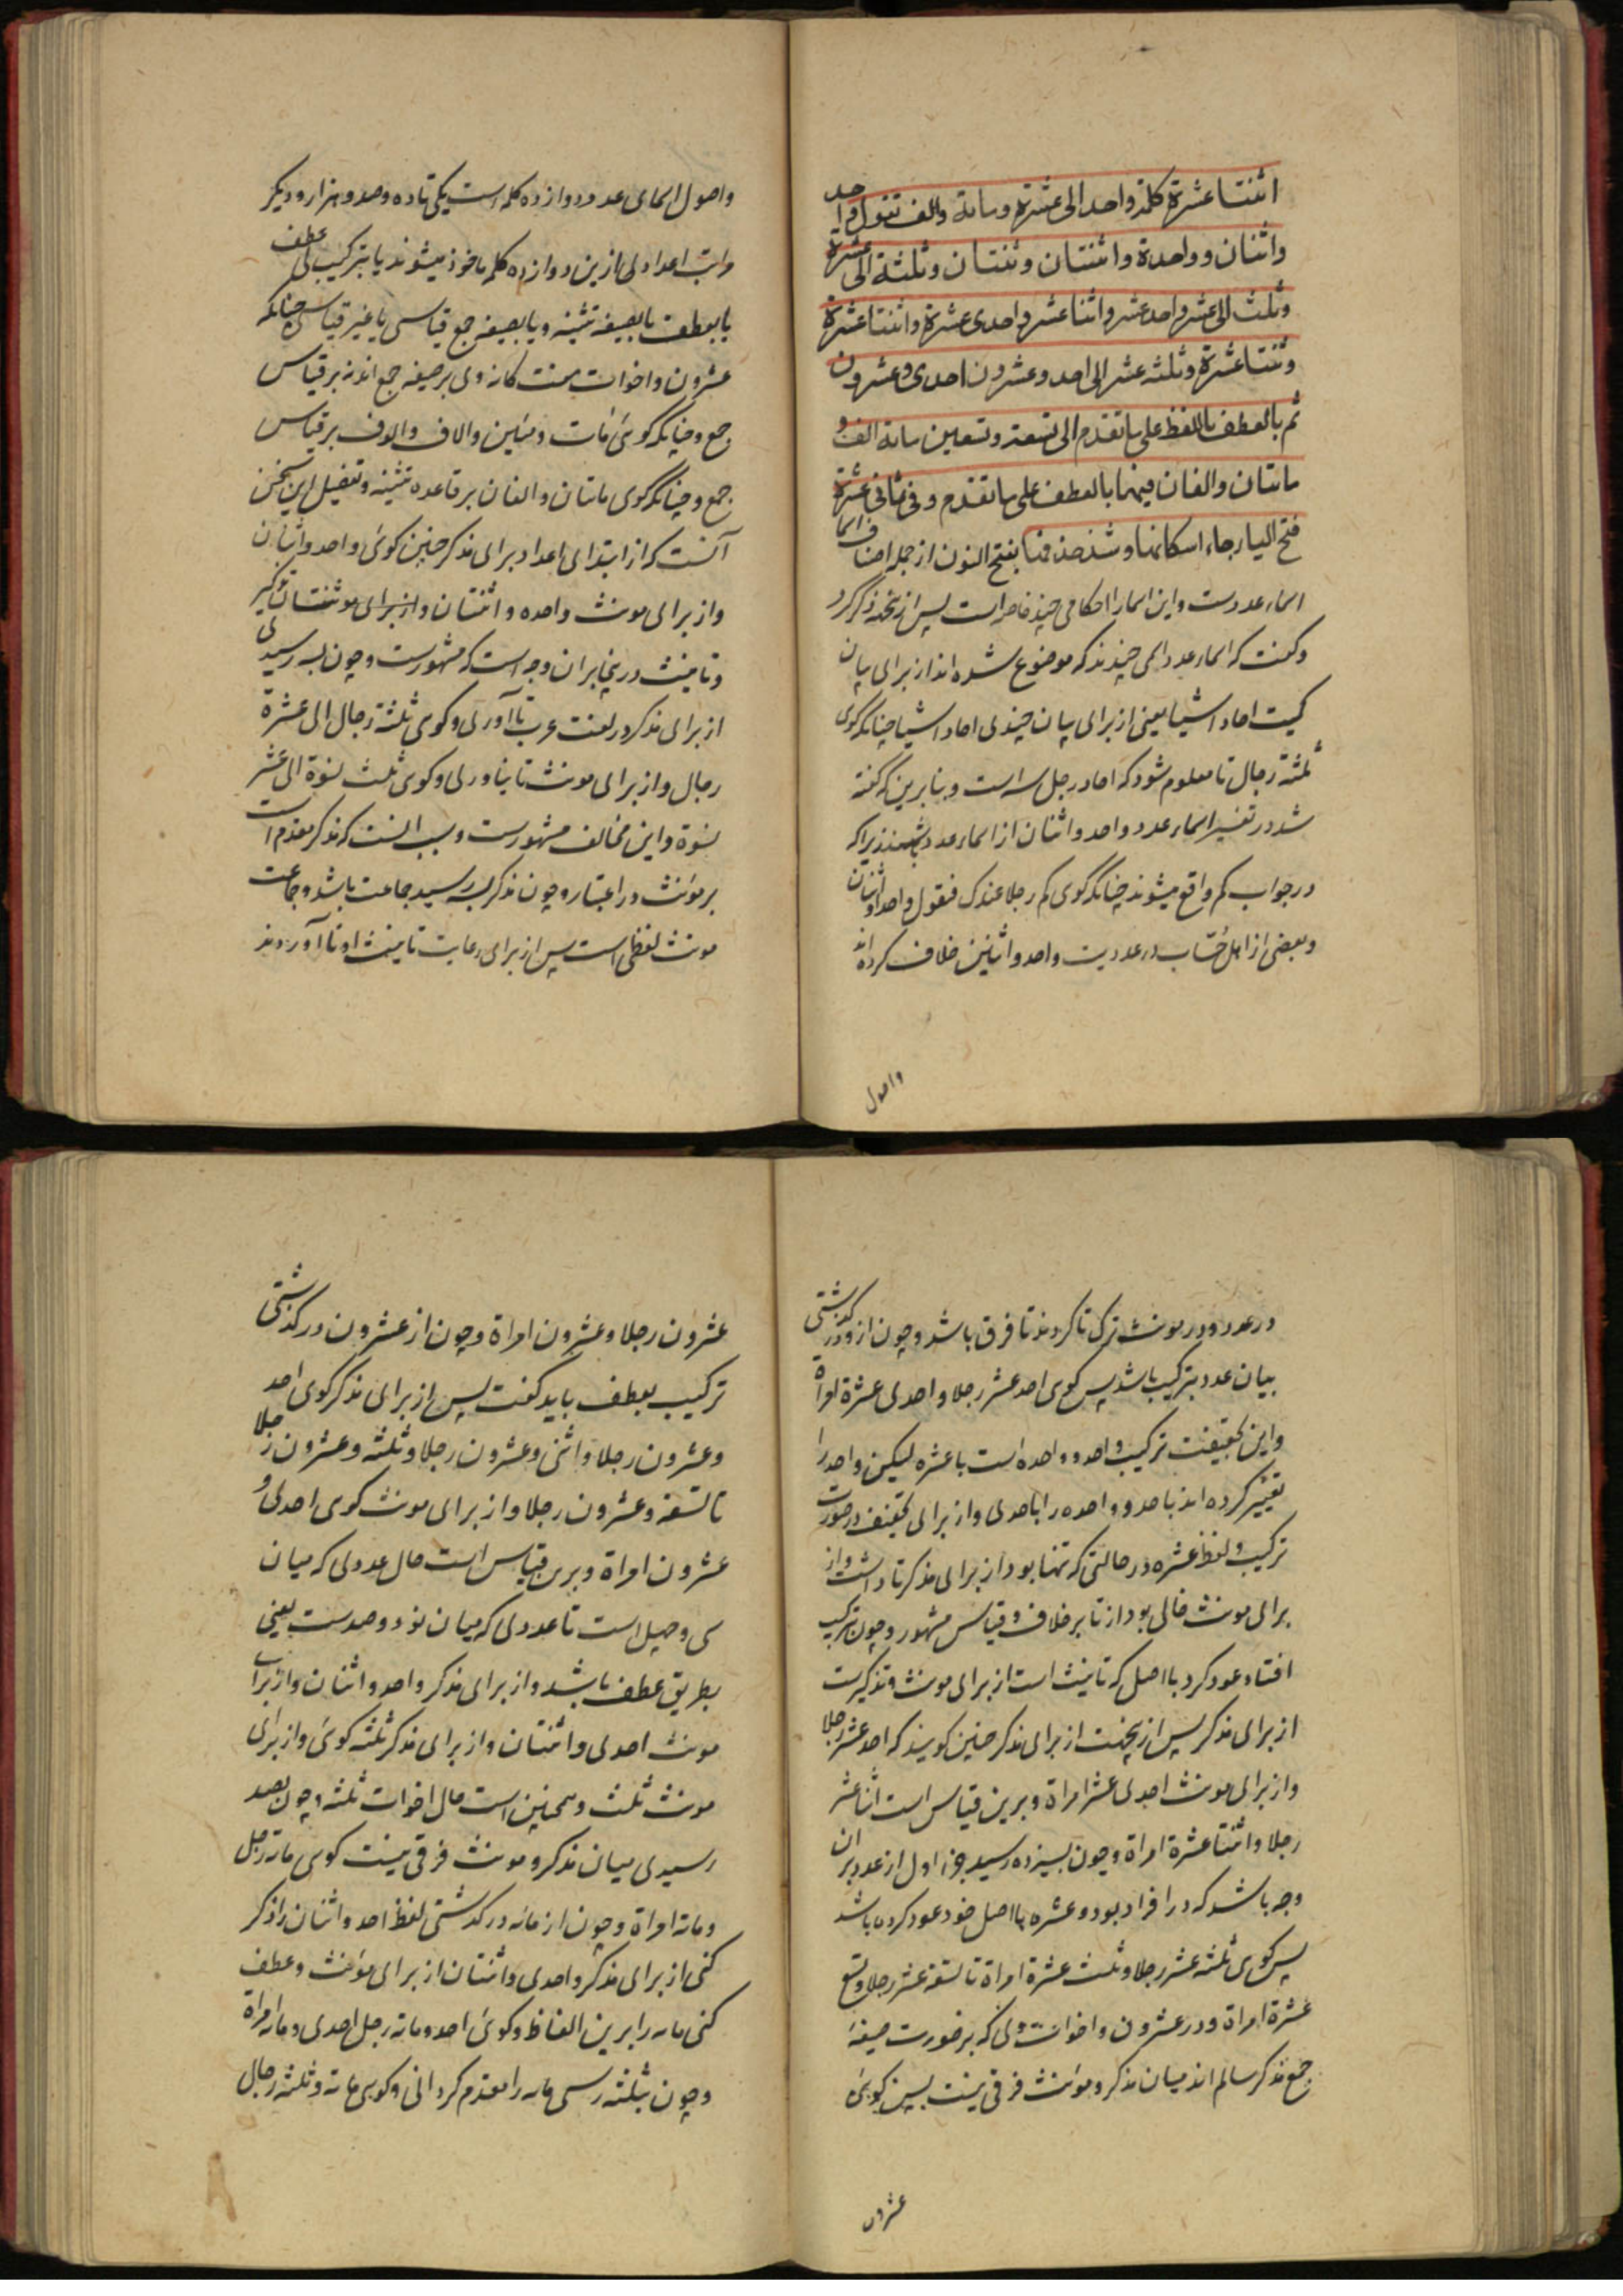 اثنتا عشرة كلمة واحد الى عشرة ومائة والف تقول واحد
واثنان وواحدة واثنتان وثنتان وثلثة الى عشرة
وثلث الى عشر واحد عشر واثنا عشر واحدى عشرة واثنتا عشرة
وثنتا عشرة وثلثه عشر الى احد وعشرون احدى وعشرون
ثم بالعطف بلفظ على ما تقدم الى تسعة وتسعين مائة الف و
مائتان والفان فيهما بالعطف على ما تقدم وفي ثماني عشرة
فتح الياء وجاء اسكانها وشذ حذفها بفتح النون از جمله اصناف اسما
اسماء عددست واین اسما را احکامی چند خاصه است پس از نجهة ذکر کرد
وکفت که اسماء عدد اسمی چندند که موضوع شده اند از برای بیان
کمیت احاد اشیا یعنی از برای بیان چندی احاد اشیا چنانکه کوی
ثلثة رجال تا معلوم شود که احاد رجل سه است وبنابرین که کفته
شد در تفسیر اسماء عدد واحد واثنان از اسماء عدد باشند زیرا که
در جواب کم واقع میشوند چنانکه کوی کم رجلا عندک فتقول واحد او اثنان
وبعضی از اهل حساب در عددیت واحد واثنین خلاف کرده اند
واصول
واصول اسمای عدد دوازده کلمه است یکی تا ده وصد وهزار ودیکر
مراتب اعداد لی ازین دوازده کلمه ماخوذ میشوند یا بترکیب لی عطف
یا بعطف یا بصیغه تثنیه ویا بصیغه جمع قیاسی یا غیر قیاسی چنانکه
عشرون واخوات هشت کانه وی بر صیغه جمع اند نه بر قیاس
جمع وچنانکه کوئی مات ومئین والاف والوف بر قیاس
جمع وچنانکه کوی ماتان والفان بر قاعده تثنیه وتفصیل این سخن
آنست که از ابتدای اعداد برای مذکر چنین کوئی واحد واثنان
واز برای مونث واحده واثنتان واز برای مونث ثنتان تذکیر
وتانیث درینجا بران وجه است که مشهورست وچون بسه رسیدی
از برای مذکر در لغت عرب تا آوری وکوی ثلثة رجال الى عشرة
رجال واز برای مونث تا نیاوری وکوی ثلث نسوة الى عشر
نسوة واین مخالف مشهورست وسبب انست که مذکر مقدم است
بر مؤنث در اعتبار وچون مذکر بسه رسید جماعت باشد وجماعت
مونث لفظی است پس از برای رعایت تانیث او تا آوردند
در عدد ودر مونث ترک تا کردند تا فرق باشد وچون از ده درکذشتی
بیان عدد بترکیب باشد پس کوی احد عشر رجلا واحدی عشرة امراة
واین بحقیقت ترکیب واحد وواحده است با عشره لیکن واحد را
تغییر کرده اند باحد وواحده را باحدی واز برای تخفیف در صورت
ترکیب ولفظ عشره در حالتی که تنها بود از برای مذکر تا داشت واز
برای مونث خالی بود از تا بر خلاف قیاس مشهور وچون بترکیب
افتاد عود کرد با اصل که تانیث است از برای مونث وتذکیرست
از برای مذکر پس از نجهت از برای مذکر چنین کویند که احد عشر رجلا
واز برای مونث احدی عشر امراة وبرین قیاس است اثنا عشر
رجلا واثنتا عشرة امراة وچون بسیزده رسید جزء اول از عدد بران
وجه باشد که در افراد بود وعشره با اصل خود عود کرده باشد
پس کوی ثلثه عشر رجلا وثلث عشرة امراة تا تسعة عشر رجلا وتسع
عشرة امراة ودر عشرون واخوات وی که بر صورت صیغهٔ
جمع مذکر سالم اند میان مذکر ومؤنث فرقی نیست پس کوئی
عشرون
عشرون رجلا وعشرون امراة وچون از عشرون درکذشتی
ترکیب بعطف باید کفت پس از برای مذکر کوی احد
وعشرون رجلا واثنی وعشرون رجلا وثلثه وعشرون رجلا
تا تسعة وعشرون رجلا واز برای مونث کوی احدی و
عشرون امراة وبرین قیاس است حال عددی که میان
سی وچهل است تا عددی که میان نود وصدست یعنی
بطریق عطف باشد واز برای مذکر واحد واثنان واز برای
مونث احدی واثنتان واز برای مذکر ثلثه کوئی واز برای
مونث ثلث وهمچنین است حال اخوات ثلثه وچون بصد
رسیدی میان مذکر ومونث فرقی نیست کوی مائة رجل
ومائة امراة وچون از مائه درکذشتی لفظ احد واثنان را ذکر
کنی از برای مذکر واحدی واثنتان از برای مؤنث وعطف
کنی مائه را برین الفاظ وکوئی احد ومائة رجل احدی ومائة امراة
وچون بثلثه رسی مائه را مقدم کردانی وکوی مائة وثلثة رجال